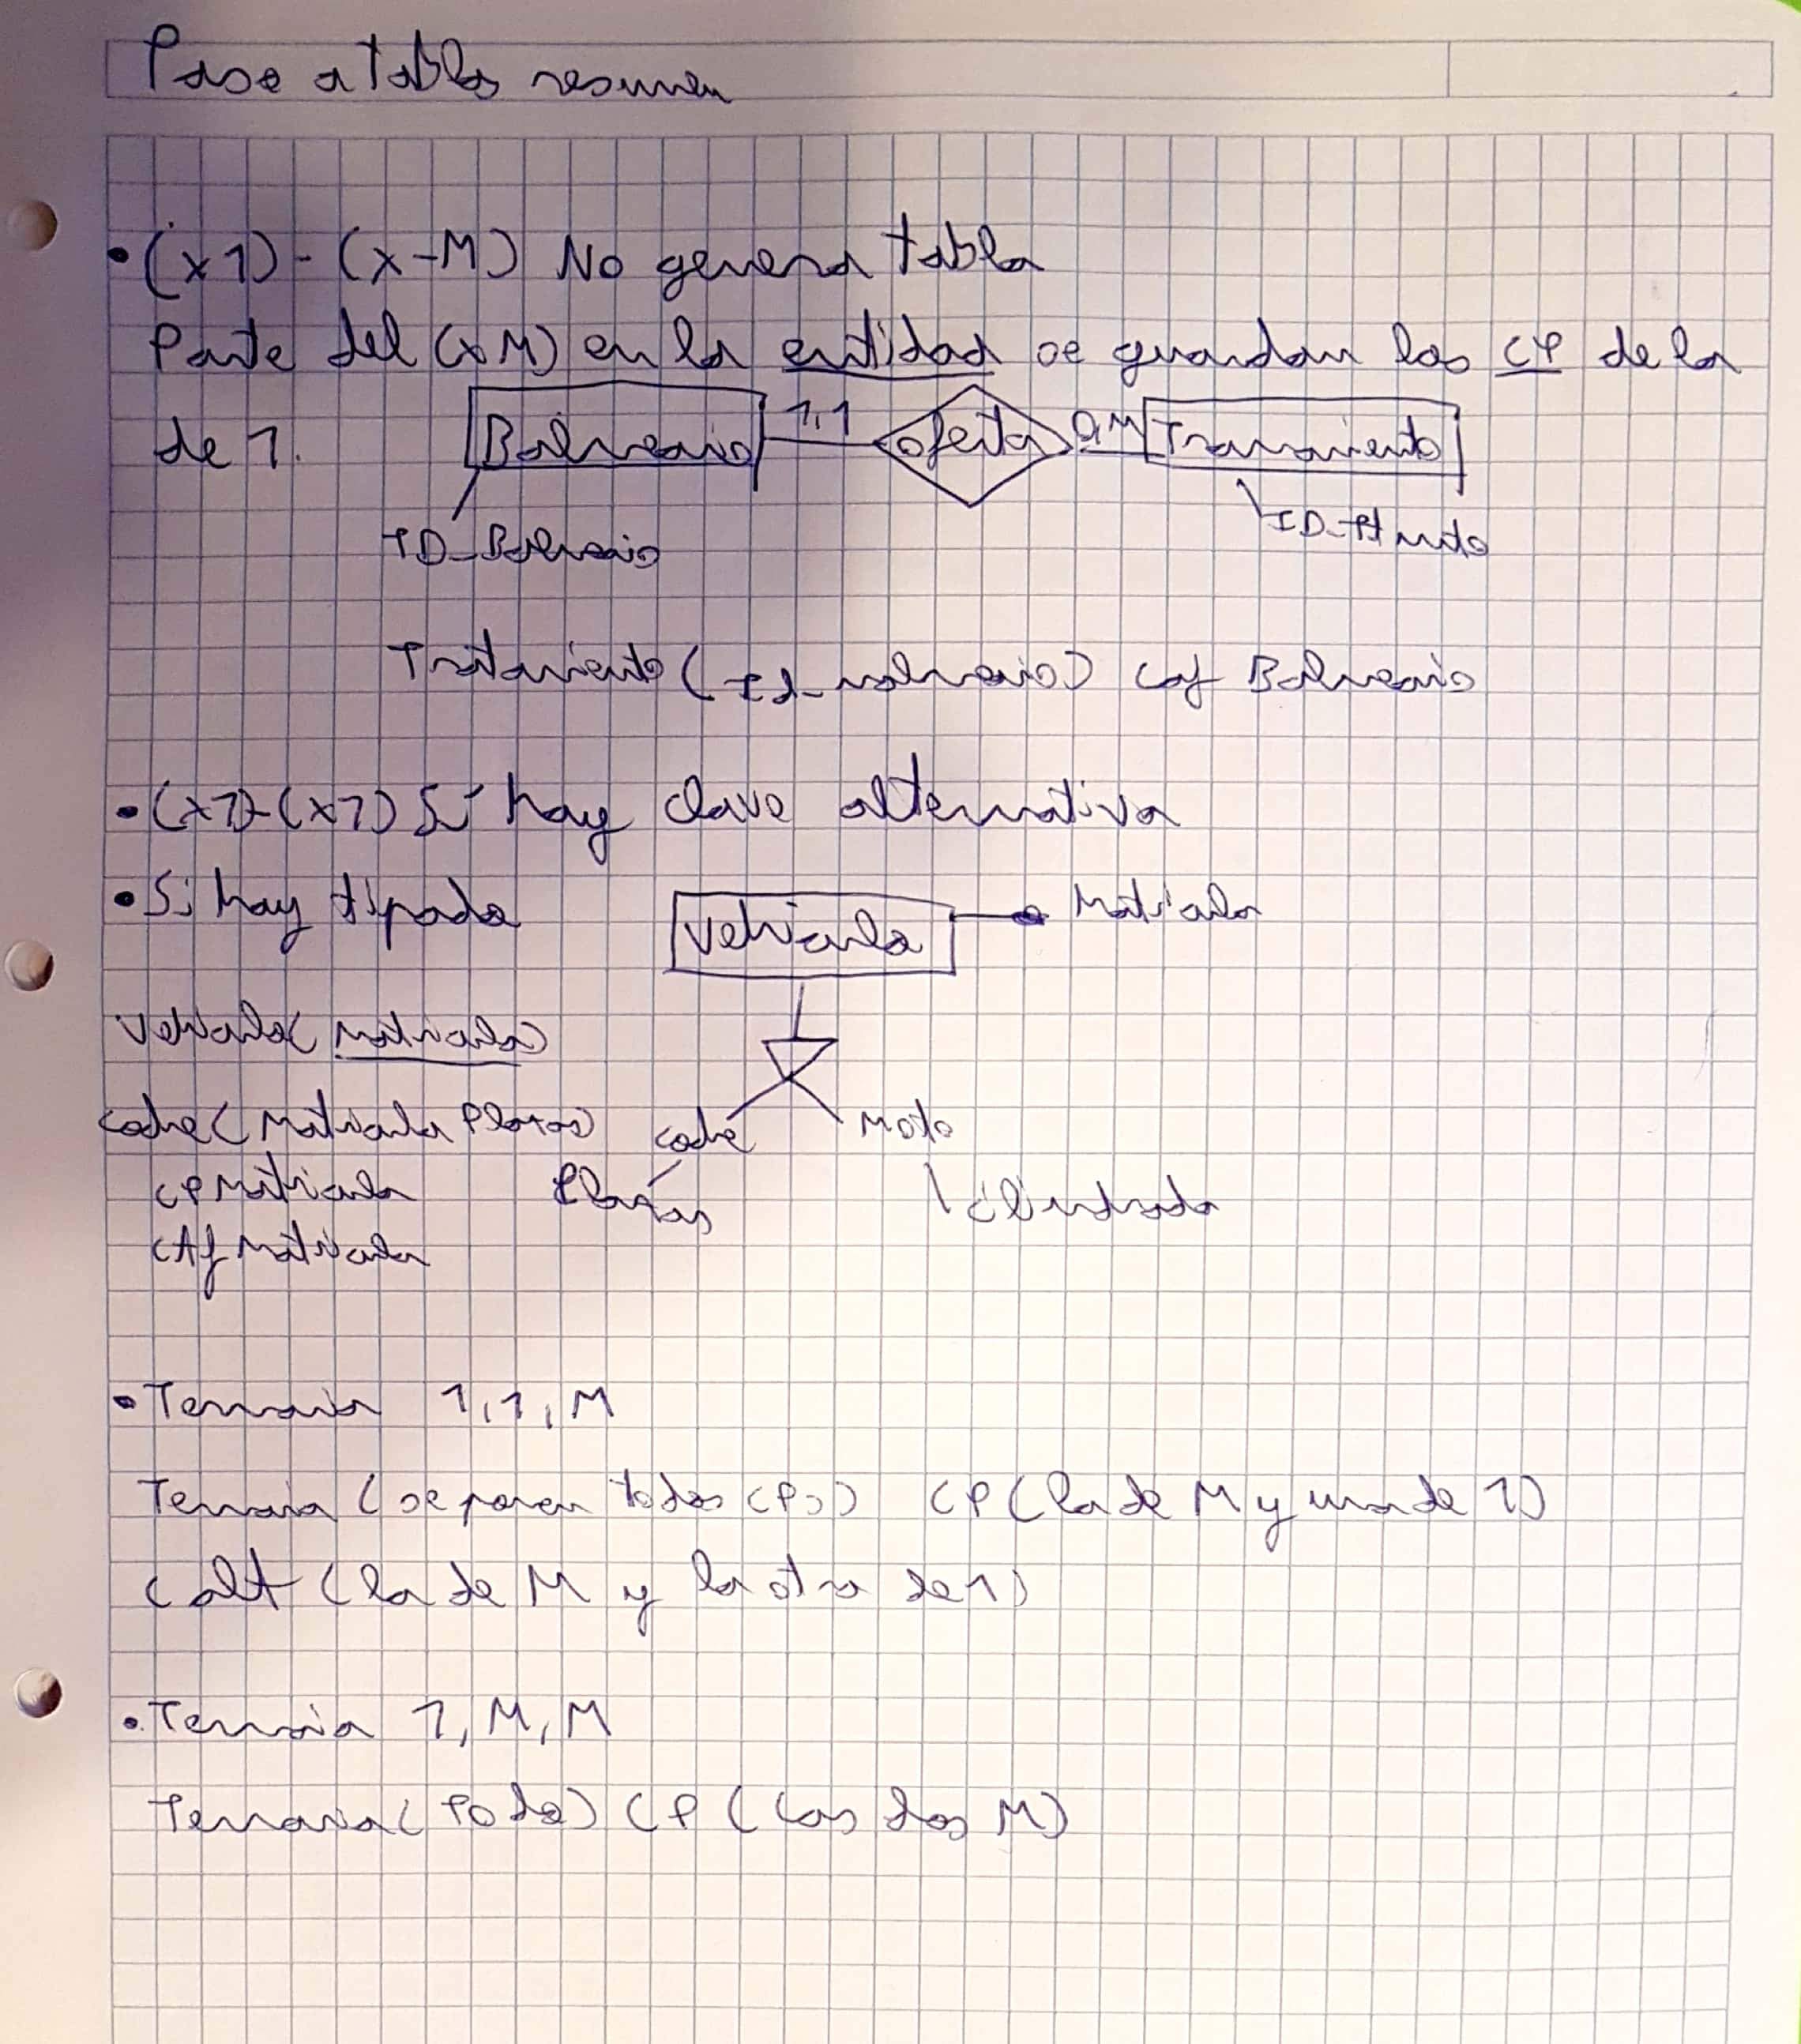 Paso a tablas resumen
• (x1) - (x-M) No genera tabla
Parte del (xM) en la entidad se guardan las CP de la
de 1. Balneario 1,1 oferta 0,M Tratamiento
ID_Balneario
Tratamiento (Id_balneario) Caf Balneario
• (x1)-(x1) Si hay clave alternativa
• Si hay tipado Vehiculo Matricula
Vehiculo( matricula)
Coche (Matricula Plazas) coche Moto
CP Matricula Plazas Cilindrada
CAf Matricula
• Ternaria 1,1,M
Ternaria (se ponen todas CPs) CP (la de M y una de 1)
C alt (la de M y la otra de 1)
• Ternaria 1, M, M
Ternaria (Todo) CP (Las dos M)